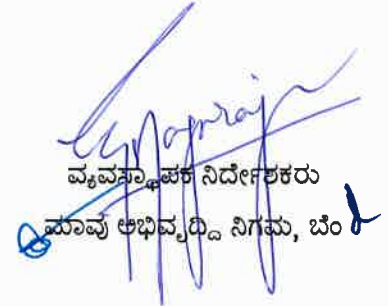 ವ್ಯವಸ್ಥಾಪಕ ನಿರ್ದೇಶಕರು
ಮಾವು ಅಭಿವೃದ್ಧಿ ನಿಗಮ, ಬೆಂ